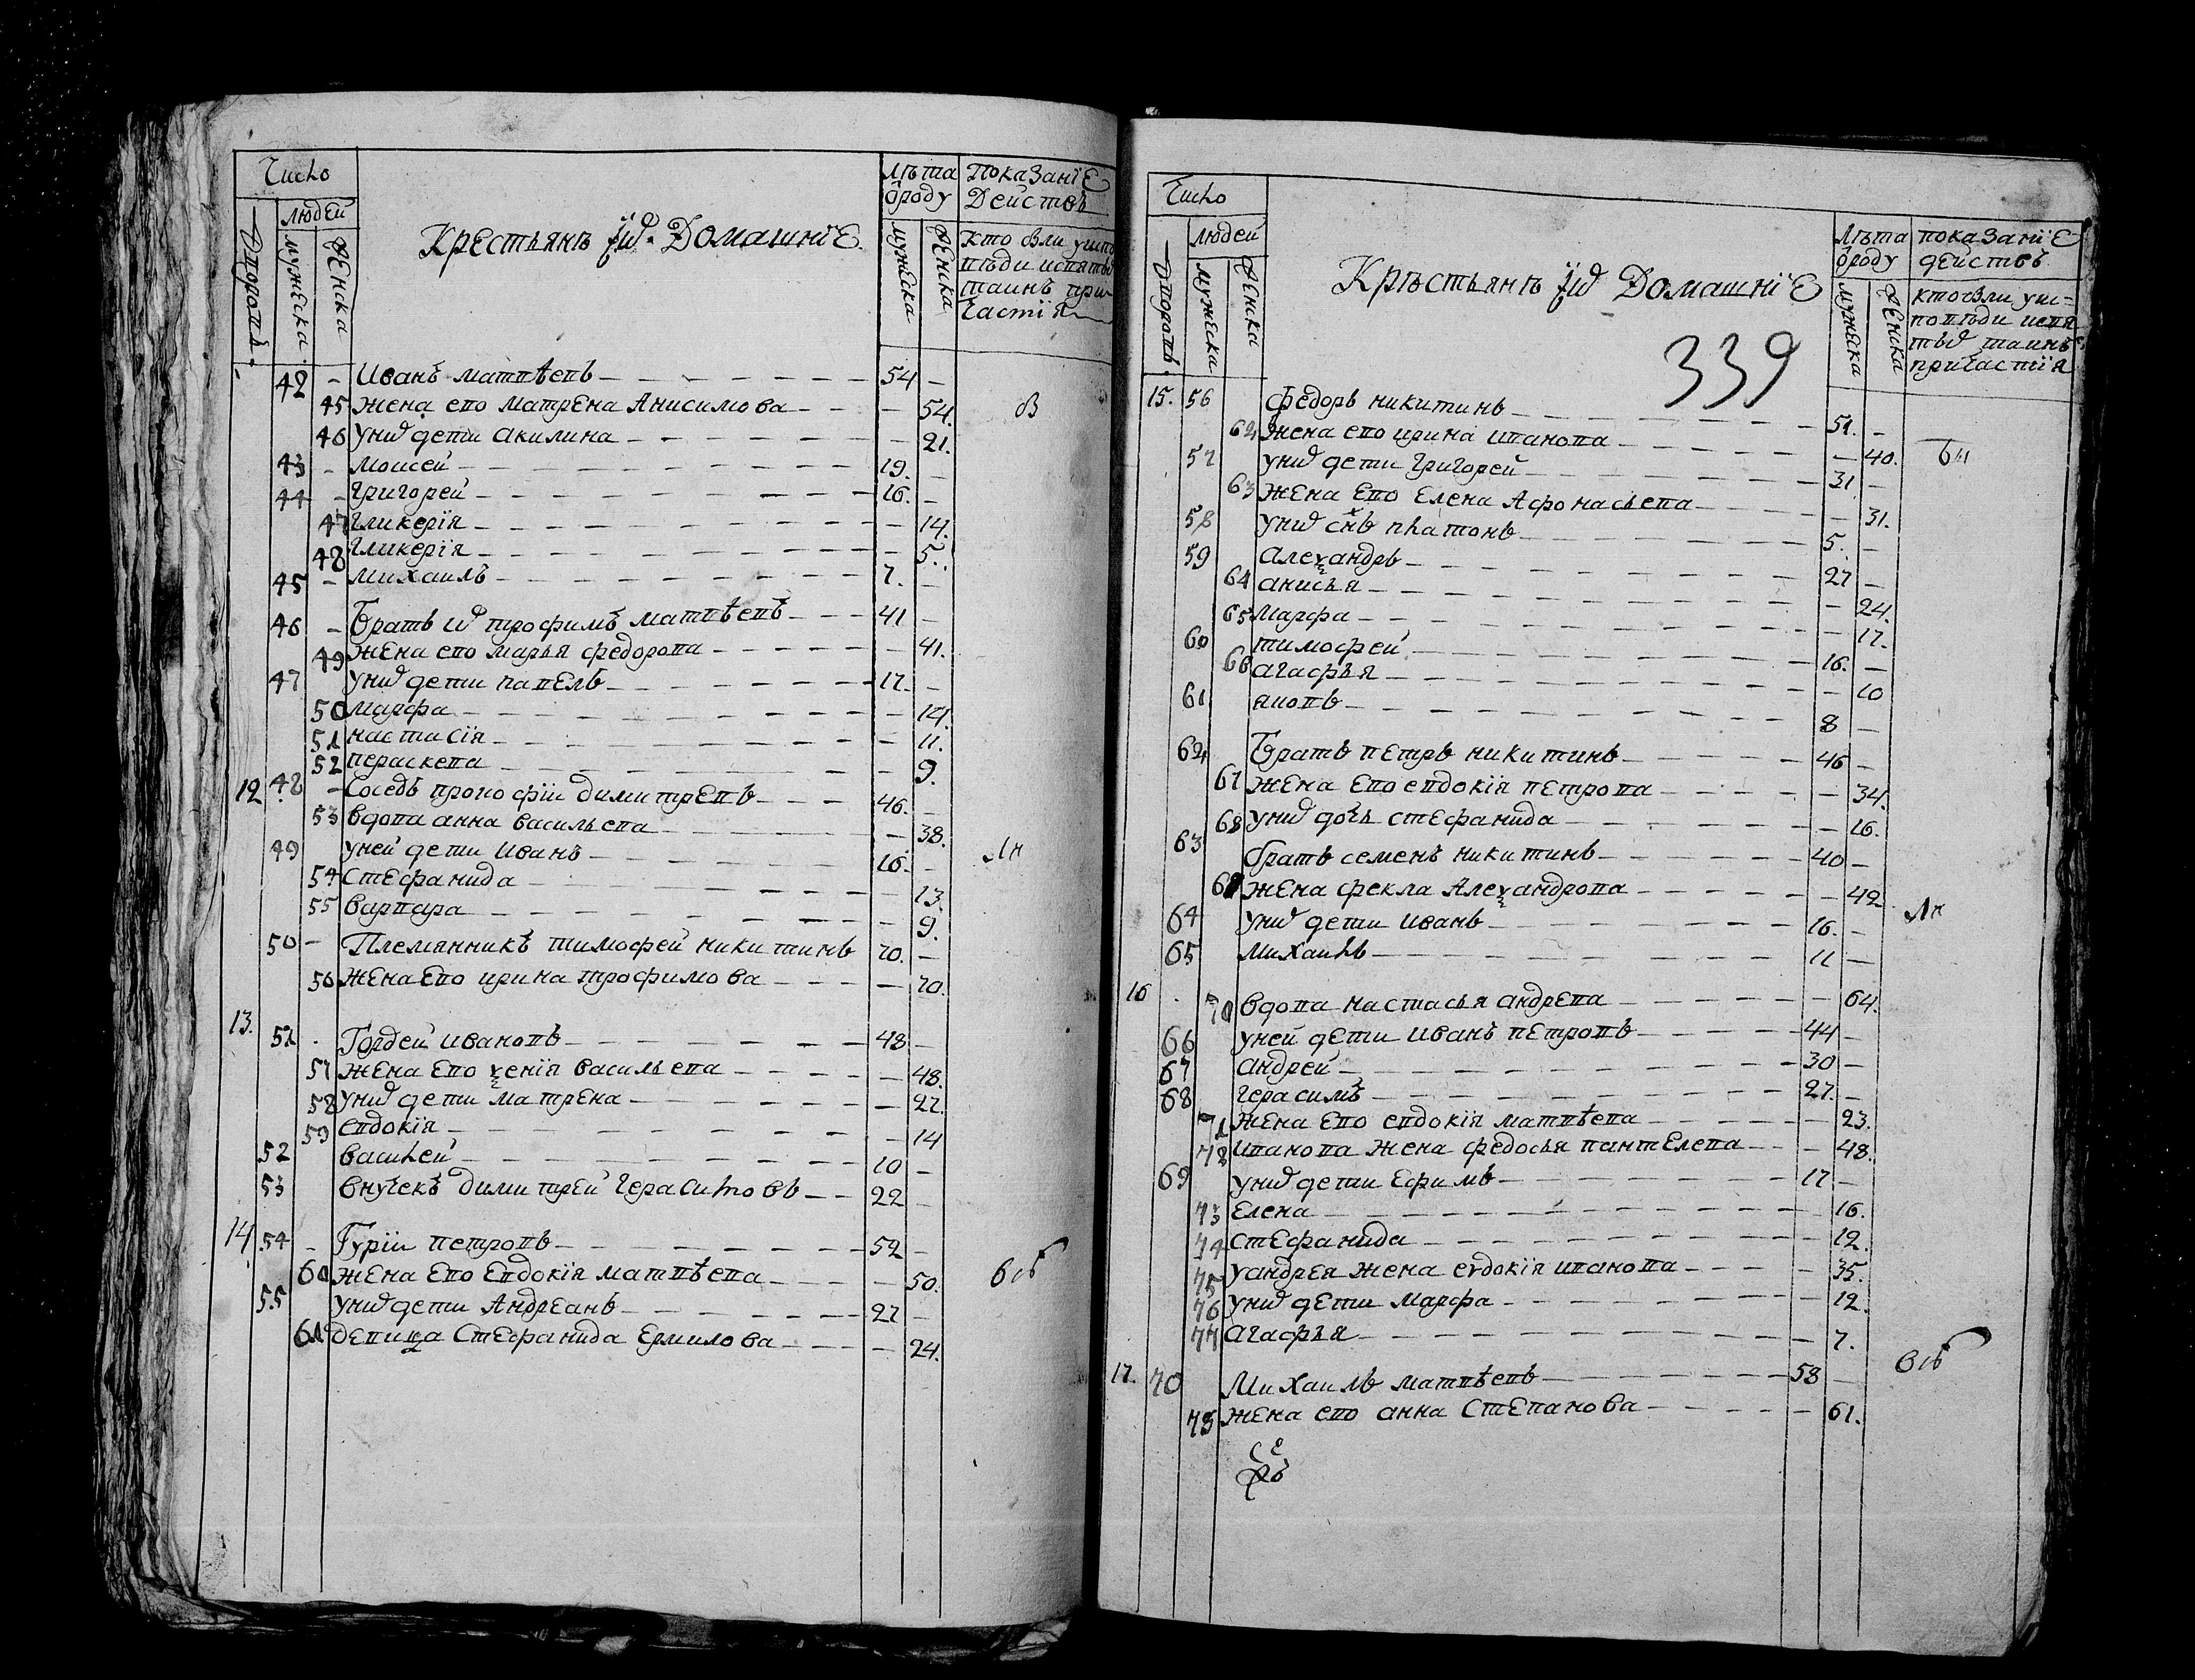 Число
Людей
Дворовъ
мужеска
женска
Крестьянъ їихъ Домашнїе
Лѣта ѿроду
мужеска
женска
Показанїе Действъ
кто были уиспо
вѣди исвяты
таинъ при
частїя
42 – Иванъ матвѣевъ 54 –
45 Жена ево матрена Анисимова – 54.
46 Унихъ дети акилина – 21.
43 – моисей 19. –
44 – григорей 16. –
47 гликерїя – 14.
48 гликерїя – 5.
45 – михаилъ 7. –
46 – Братъ ихъ трофимъ матвѣевъ 41 –
49 жена ево марья федорова – 41.
47 унихъ дети павелъ 17. –
50 марфа – 14.
51 настасїя – 11.
52 пераскева – 9.
12 48 – Соседъ прокофїи димитревъ 46. –
53 вдова анна васильева – 38.
49 уней дети иванъ 16. –
54 стефанида – 13.
55 варвара – 9.
50 – Племянникъ тимофей никитинъ 20. –
56 Жена Ево ирина трофимова – 20.
13. 51 Гордей ивановъ 48 –
57 жена ево ѯенїя васильева – 48.
58 унихъ дети матрена – 22.
59 евдокїя – 14
52 василей 10 –
53 внучекъ димитрей герасимовъ 22 –
14 54 – Гурїи петровъ 52 –
60 жена ево евдокїя матвѣева – 50.
55 унихъ дети Андреанъ 27 –
61 девица Стефанида Ермилова – 24.
Число
Людей
Дворовъ
мужеска
женска
Крѣстьянъ їихъ Домашнїе
Лѣта ѿроду
мужеска
женска
показанїе действъ
кто были уис=
повѣди исвя
тыхъ таинъ
причастїя
339
15. 56 федоръ никитинъ 51. –
62 жена ево ирина иванова – 40.
57 унихъ дети григорей 31 –
63 жена ево елена Афонасьева – 31.
58 унихъ сн҃ъ платонъ 5. –
59 алеѯандръ 27 –
64 анисья – 24.
65 марфа – 17.
60 тимофей 16. –
66 агафья – 10
61 яковъ 8 –
62 Братъ петръ никитинъ 46 –
67 жена ево евдокїя петрова – 34.
68 унихъ дочь стефанида – 16.
63 братъ семенъ никитинъ 40 –
69 жена фекла Алеѯандрова – 42
64 унихъ дети иванъ 16. –
65 михаилъ 11 –
16 70 вдова настасья андрева – 64.
66 уней дети иванъ петровъ 44 –
67 андрей 30 –
68 герасимъ 27. –
71 жена ево евдокїя матвѣева – 23.
72 иванова жена федосья пантелева – 48.
69 унихъ дети ефимъ 17 –
73 елена – 16.
74 стефанида – 12.
75 уандрея жена еѵдокїя иванова – 35.
76 унихъ дети марфа – 12.
77 агафья – 7.
17. 70 Михаилъ матвѣевъ 58 –
78 жена ево анна степанова – 61.